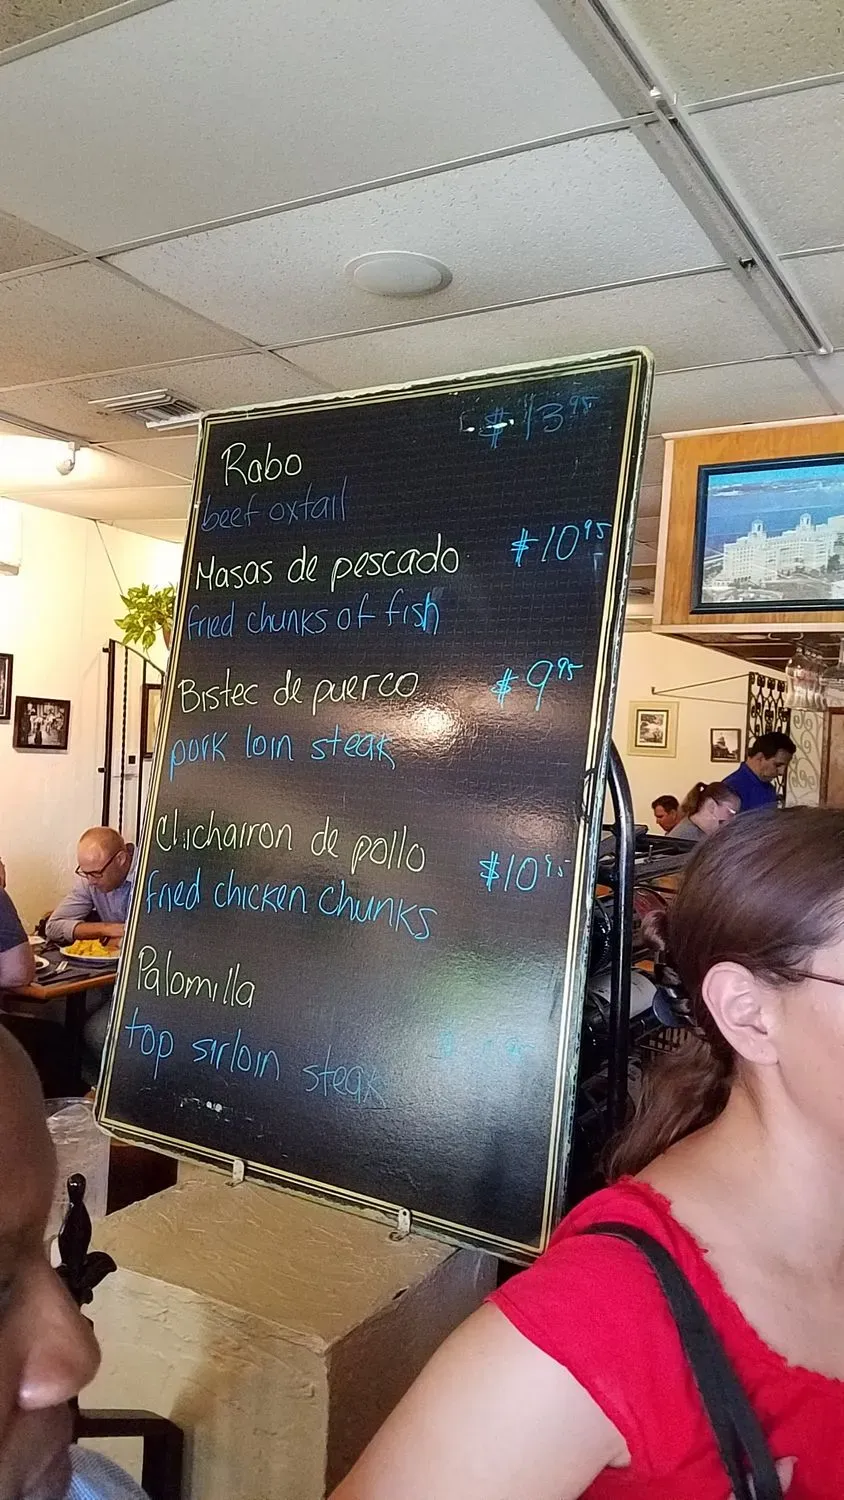 Rabo $13.95
beef oxtail
Masas de pescado $10.95
fried chunks of fish
Bistec de puerco $9.95
pork loin steak
Chicharron de pollo $10.95
fried chicken chunks
Palomilla
top sirloin steak